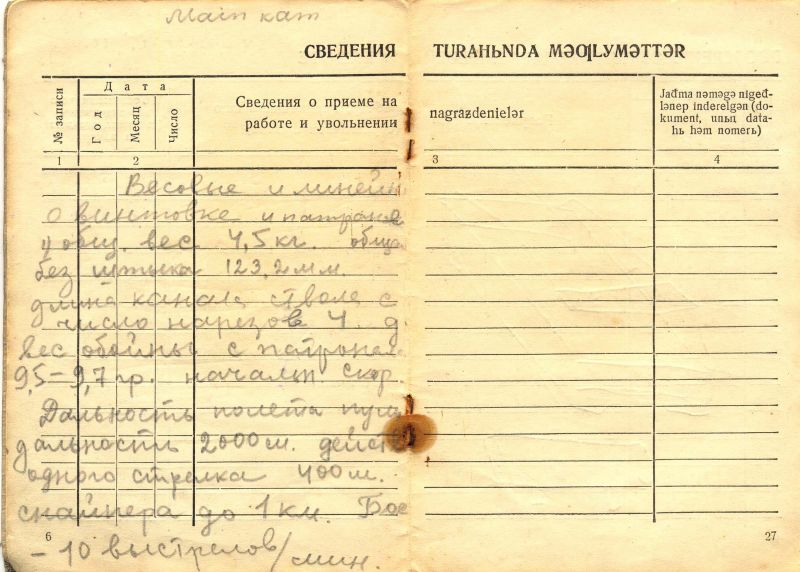 Main кат
СВЕДЕНИЯ
TURAHЬNDA MƏOĻLYMƏTTƏR
№ записи
Дата
Год
Месяц
Число
Сведения о приеме на
работе и увольнении
nagrazdenielər
Jađma nəməgə niged-
lənep inderelgən (do-
kument, unьꞑ data-
hь həm nomerь)
1
2
3
4
Весовые и линей
о винтовке и патроне
общ. вес 4,5 кг. общ
без штыка 123,2 мм.
длина канала ствола с
число нарезов 4. д
вес обоймы с патрона
9,5–9,7 гр. начальн. скор.
Дальность полета пули
дальность 2000 м. дейст
одного стрелка 400 м.
снайпера до 1 км. Бое
– 10 выстрелов/мин.
6
27